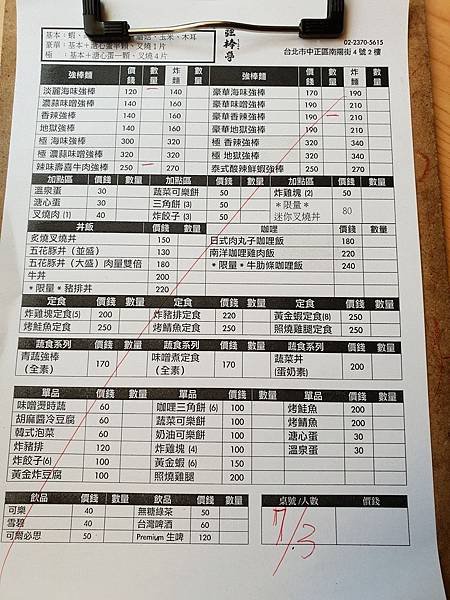 基本：蝦、 蘑菇、玉米、木耳
豪華：基本＋溏心蛋半顆、叉燒1片
極　：基本＋溏心蛋一顆、叉燒4片
強棒亭
02-2370-5615
台北市中正區南陽街4號2樓
強棒麵 價錢 數量 炸麵 數量 強棒麵 價錢 數量 炸麵 數量
淡麗海味強棒 120 一 140 豪華海味強棒 170 190
濃蒜味噌強棒 140 160 豪華味噌強棒 190 210
香辣強棒 140 160 豪華香辣強棒 190 一 210
地獄強棒 140 160 豪華地獄強棒 190 210
極 海味強棒 300 320 極 香辣強棒 320 340
極 濃蒜味噌強棒 320 340 極 地獄強棒 320 340
辣味壽喜牛肉強棒 250 一 270 泰式酸辣鮮蝦強棒 250 270
加點區 價錢 數量 加點區 價錢 數量 加點區 價錢 數量
溫泉蛋 30 蔬菜可樂餅 50 炸雞塊 (2) 50
溏心蛋 30 三角餅 (3) 50 ＊限量＊
迷你叉燒丼 80
叉燒肉 (1) 40 炸餃子 (3) 50
丼飯 價錢 數量 咖哩 價錢 數量
炙燒叉燒丼 150 日式肉丸子咖哩飯 180
五花豚丼（並盛） 130 南洋咖哩雞肉飯 220
五花豚丼（大盛）肉量雙倍 180 ＊限量＊牛肋條咖哩飯 240
牛丼 200
＊限量＊豬排丼 220
定食 價錢 數量 定食 價錢 數量 定食 價錢 數量
炸雞塊定食(5) 200 炸豬排定食 220 黃金蝦定食(8) 250
烤鮭魚定食 250 烤鯖魚定食 250 照燒雞腿定食 250
蔬食系列 價錢 數量 蔬食系列 價錢 數量 蔬食系列 價錢 數量
青蔬強棒
（全素） 170 味噌煮定食
（全素） 170 蔬菜丼
(蛋奶素) 200
單品 價錢 數量 單品 價錢 數量 單品 價錢 數量
味噌燙時蔬 60 咖哩三角餅 (6) 100 烤鮭魚 200
胡麻醬冷豆腐 60 蔬菜可樂餅 100 烤鯖魚 200
韓式泡菜 60 奶油可樂餅 100 溏心蛋 30
炸豬排 120 炸雞塊 (4) 100 溫泉蛋 30
炸餃子(6) 100 黃金蝦 (6) 150
黃金炸豆腐 100 照燒雞腿 200
飲品 價錢 數量 飲品 價錢 數量
可樂 40 無糖綠茶 50
雪碧 40 台灣啤酒 60
可爾必思 50 Premium 生啤 120
桌號/人數 價錢